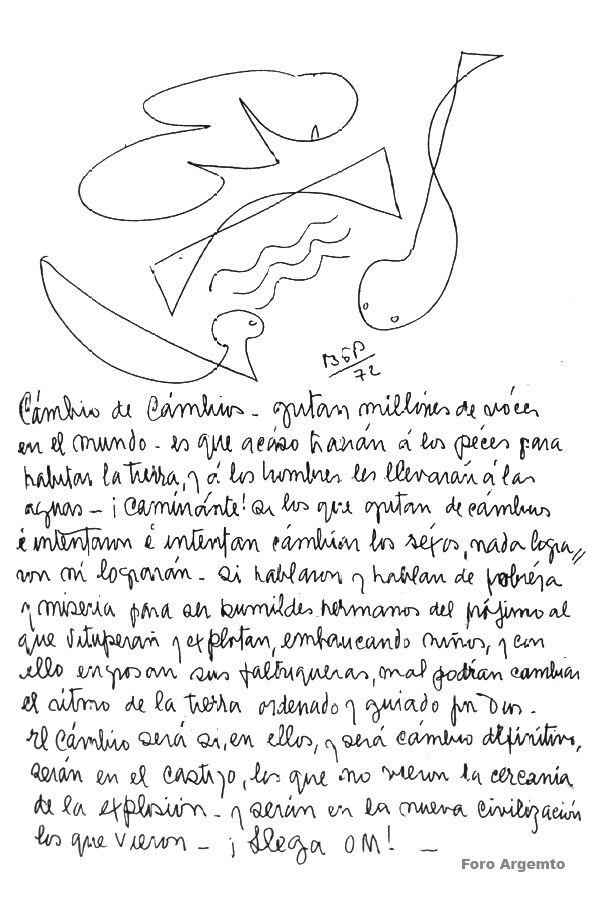 BSP
72
Cámbio de Cámbios - gritan millónes de vóces
en el mundo - es que acáso traián á los péces para
habitar la tierra, y á los hombres les llevarán á las
aguas - ¡Caminánte! si los que gritan de cámbios
é intentaron é intentan cámbiar los séxos, nada logra〃
ron ni lograrán - si hablaron y hablan de pobréza
y miseria para ser humildes hermanos del prójimo al
que vituperan y explotan, embaucando niños, y con
ello engrosan sus faltriqueras, mal podrán cambiar
el ritmo de la tierra ordenado y guiado por Dios -
El Cámbio será si, en ellos, y será cámbio definitivo,
serán en el castigo, los que no vieron la cercania
de la explosion - y serán en la nueva civilización
los que vieron - ¡ Llega OM! —
Foro Argemto